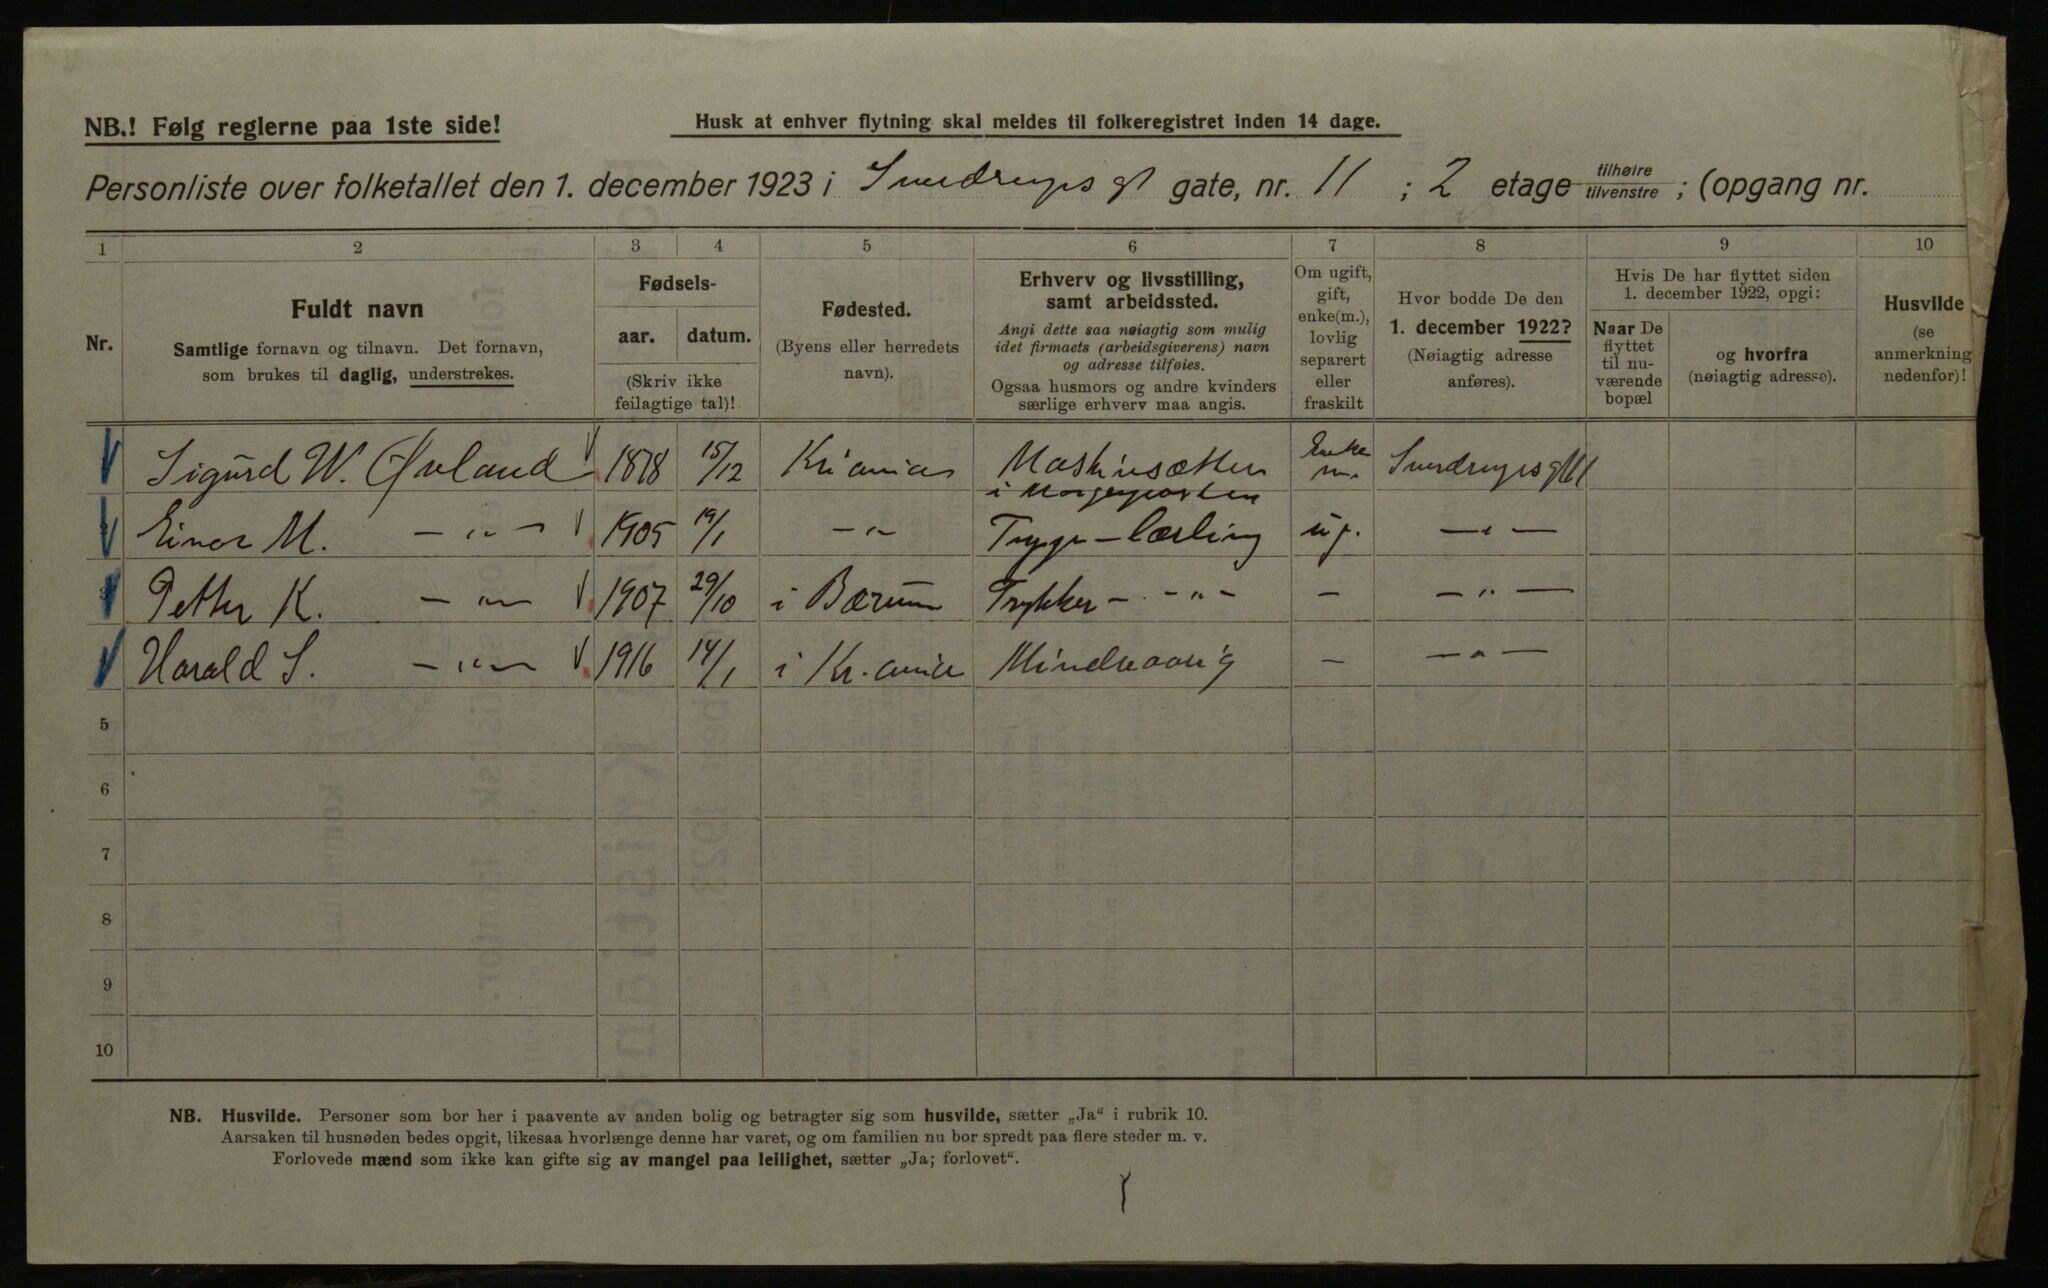 NB.! Følg reglerne paa 1ste side!
Husk at enhver flytning skal meldes til folkeregistret inden 14 dage.
Personliste over folketallet den 1. december 1923 i Sverdrups gt gate, nr. 11 ; 2 etage tilhøire tilvenstre ; (opgang nr.
1 2 3 4 5 6 7 8 9 10
Nr.
Fuldt navn
Samtlige fornavn og tilnavn. Det fornavn,
som brukes til daglig, understrekes.
Fødsels-
aar. datum.
(Skriv ikke
feilagtige tal)!
Fødested.
(Byens eller herredets
navn).
Erhverv og livsstilling,
samt arbeidssted.
Angi dette saa nøiagtig som mulig
idet firmaets (arbeidsgiverens) navn
og adresse tilføies.
Ogsaa husmors og andre kvinders
særlige erhverv maa angis.
Om ugift,
gift,
enke(m.),
lovlig
separert
eller
fraskilt
Hvor bodde De den
1. december 1922?
(Nøiagtig adresse
anføres).
Hvis De har flyttet siden
1. december 1922, opgi:
Naar De
flyttet
til nu-
værende
bopæl
og hvorfra
(nøiagtig adresse).
Husvilde
(se
anmerkning
nedenfor)!
Sigurd W. Øvland 1878 15/12 Kr.ania Maskinsætter i Morgenposten Enke m. Sverdrupsgt 11
Einar M. — „ — 1905 19/1 — „ — lærling ug. — „ —
Petter K. — „ — 1907 29/10 i Bærum Trykker — „ — — — „ —
Harald S. — „ — 1916 14/1 i Kr.ania Mindreaarig — — „ —
5
6
7
8
9
10
NB. Husvilde. Personer som bor her i paavente av anden bolig og betragter sig som husvilde, sætter „Ja“ i rubrik 10.
Aarsaken til husnøden bedes opgit, likesaa hvorlænge denne har varet, og om familien nu bor spredt paa flere steder m. v.
Forlovede mænd som ikke kan gifte sig av mangel paa leilighet, sætter „Ja; forlovet“.